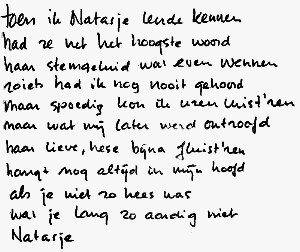 toen ik Natasje leerde kennen
had ze net het hoogste woord
haar stemgeluid was even wennen
zoiets had ik nog nooit gehoord
maar spoedig kon ik uren luist'ren
maar wat mij later werd ontroofd
haar lieve, hese bijna fluist'ren
hangt nog altijd in mijn hoofd
als je niet zo hees was
was je lang zo aardig niet
Natasje